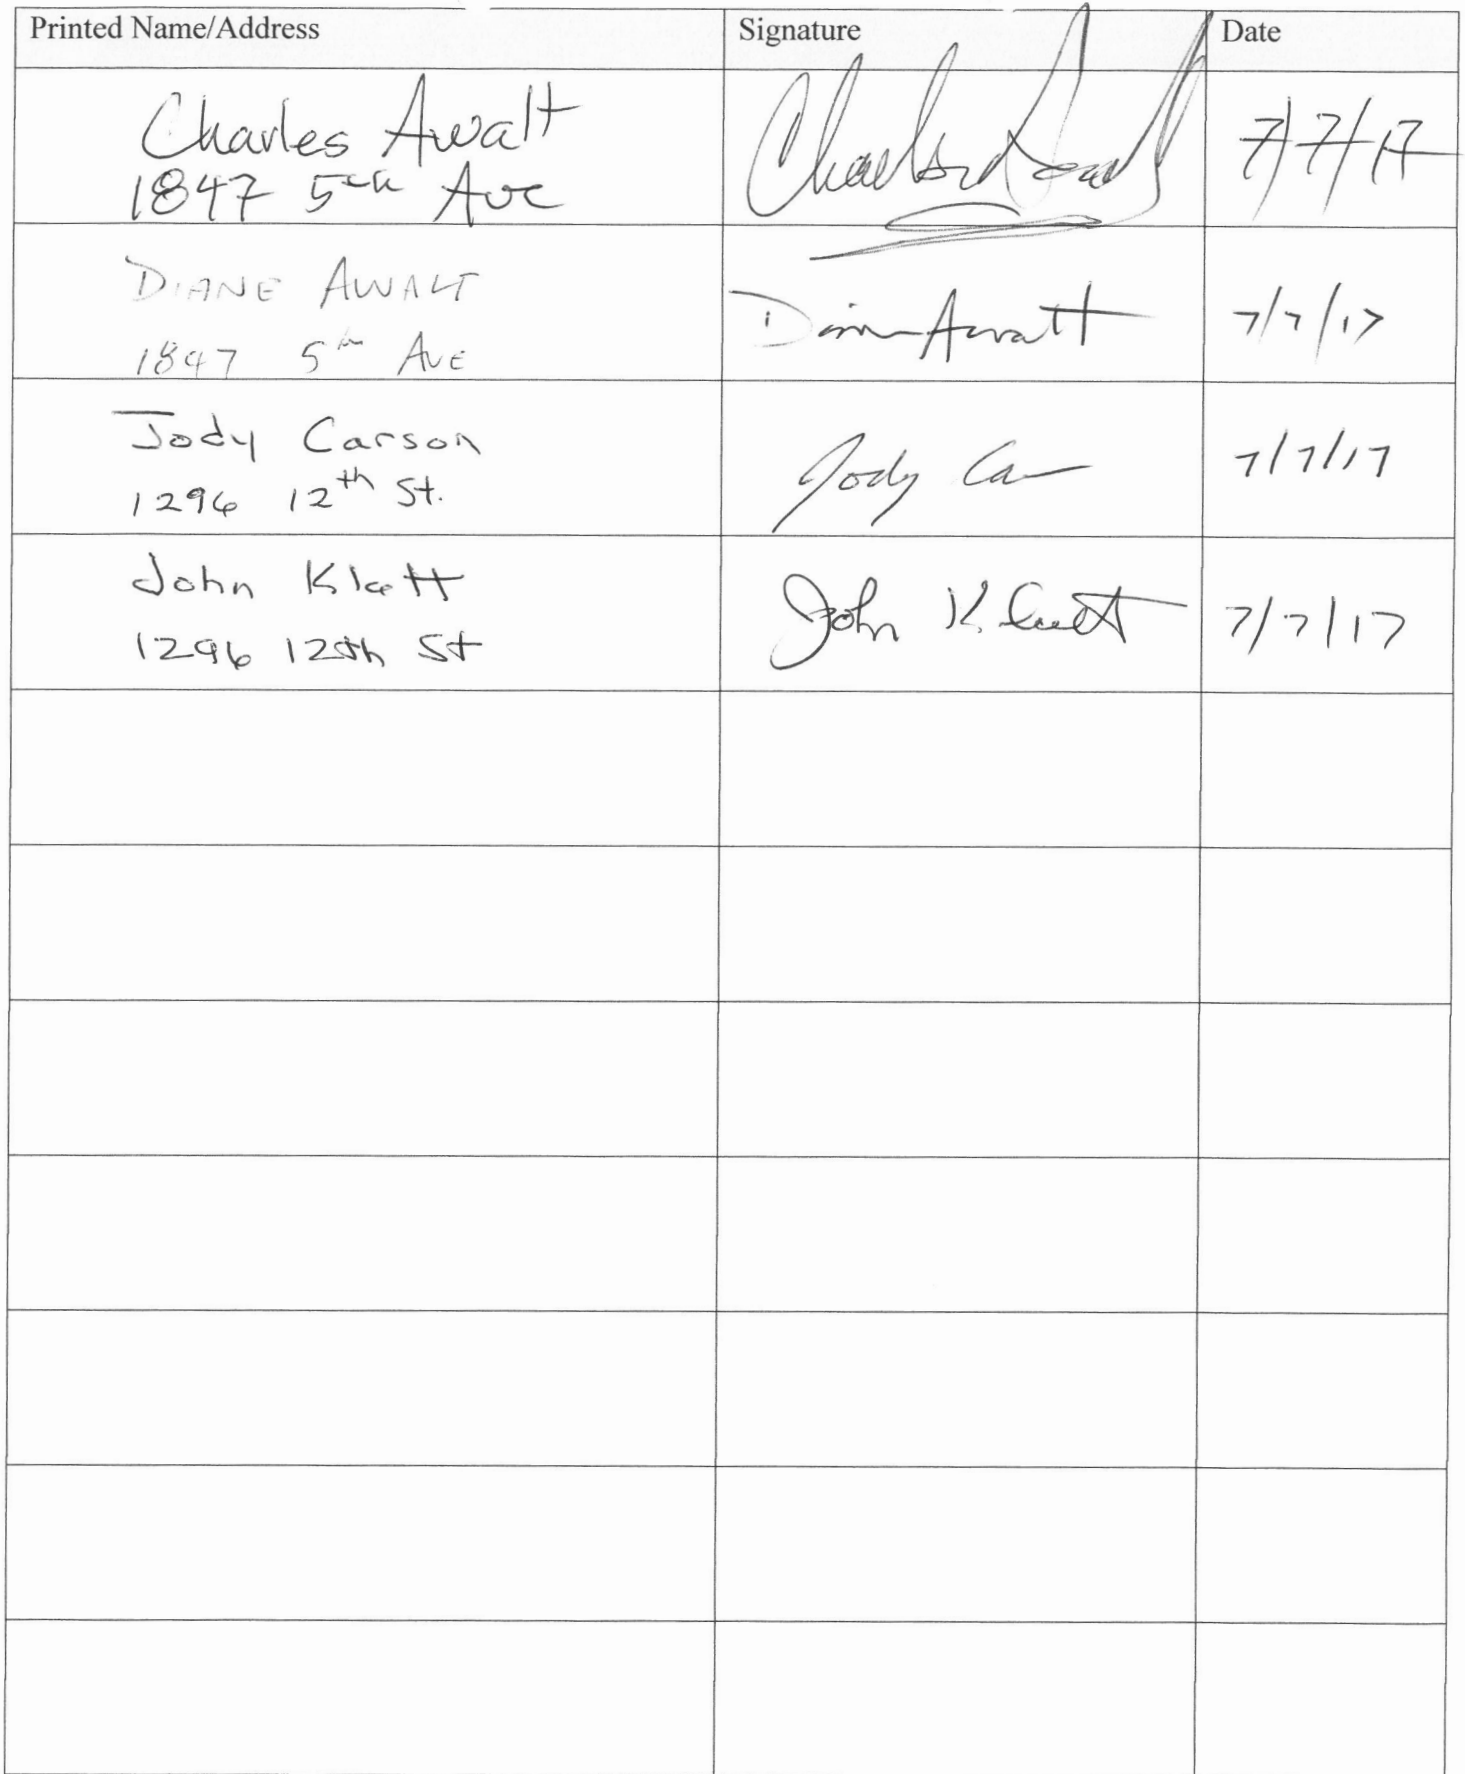 Printed Name/Address Signature Date
Charles Awalt
1847 5th Ave
Charles Awalt 7/7/17
DIANE AWALT
1847 5th AVE
Diane Awalt 7/7/17
Jody Carson
1296 12th St.
Jody Ca 7/7/17
John Klatt
1296 12th St
John Klatt 7/7/17